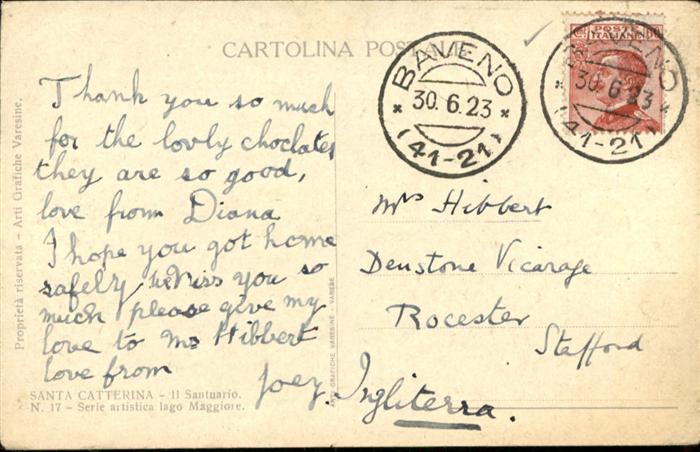 CARTOLINA POSTALE
BAVENO
* 30.6.23 *
(41-21)
POSTE
ITALIANE
BAVENO
* 30.6.23 *
(41-21)
Thank you so much
for the lovly choclates
they are so good,
love from Diana
I hope you got home
safely, we Miss you so
much please give my
love to Mr Hibbert
love from
Joey.
Mrs Hibbert
Denstone Vicarage
Rocester
Stafford
Ingliterra.
SANTA CATTERINA - Il Santuario.
N. 17 - Serie artistica lago Maggiore.
Proprietà riservata - Arti Grafiche Varesine.
ARTI GRAFICHE VARESINE - VARESE